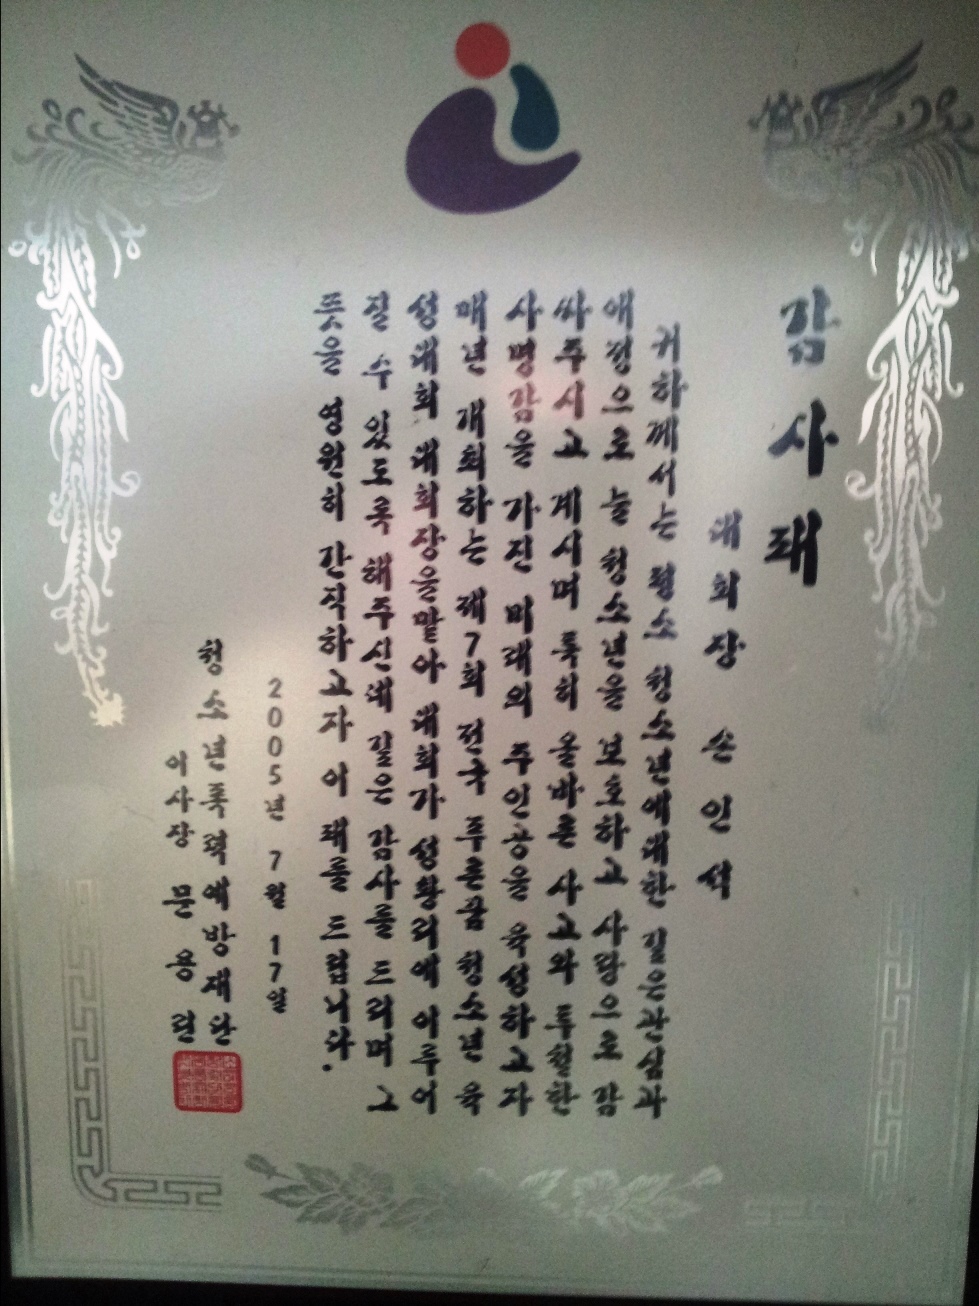 감사패
대회장 손인석
귀하께서는 평소 청소년에대한 깊은관심과
애정으로 늘 청소년을 보호하고 사랑으로 감
싸주시고 계시며 특히 올바른 사고와 투철한
사명감을 가진 미래의 주인공을 육성하고자
매년 개최하는 제7회 전국 푸른꿈 청소년 육
성대회 대회장을맡아 대회가 성황리에 이루어
질 수 있도록 해주신데 깊은 감사를 드리며 그
뜻을 영원히 간직하고자 이 패를 드립니다.
2005년 7월 17일
청소년폭력예방재단
이사장 문용린